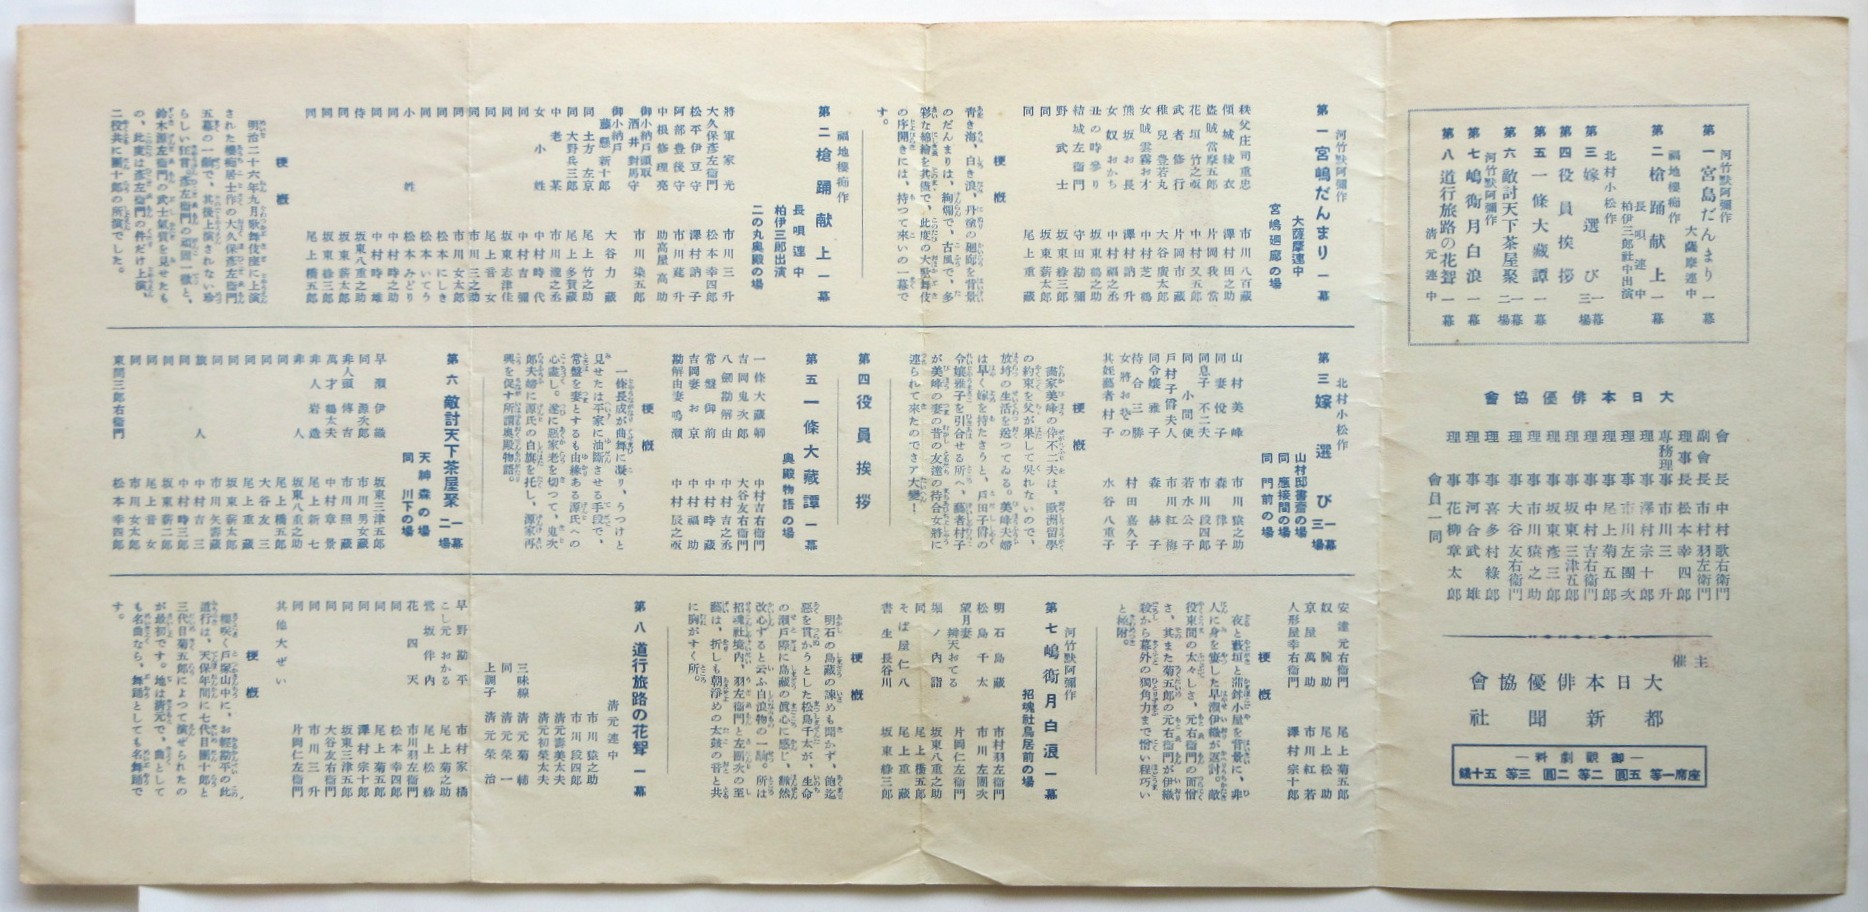 河竹默阿彌作
第一 宮島だんまり 一幕
大薩摩連中
福地櫻痴作
第二 槍踊献上 一幕
長唄連中
柏伊三郎社中出演
北村小松作
第三 嫁選び 一幕三場
第四 役員挨拶
第五 一條大藏譚 一幕
第六 敵討天下茶屋聚 一幕二場
河竹默阿彌作
第七 嶋衛月白浪 一幕
第八 道行旅路の花聟 一幕
清元連中
大日本俳優協會
會長 中村歌右衛門
副會長 市村羽左衛門
理事長 松本幸四郎
專務理事 市川三升
理事 澤村宗十郎
理事 市川左團次
理事 尾上菊五郎
理事 中村吉右衛門
理事 坂東三津五郎
理事 坂東彥三郎
理事 市川猿之助
理事 大谷友右衛門
理事 喜多村綠郎
理事 河合武雄
理事 花柳章太郎
會員一同
主催
大日本俳優協會
都新聞社
―御觀劇料―
座席一等 五圓 二等 二圓 三等 五十錢
河竹默阿彌作
第一 宮嶋だんまり 一幕
大薩摩連中
宮嶋廻廊の場
秩父庄司重忠 市川八百藏
傾城綾衣 澤村田之助
盜賊當摩五郎 片岡我當
花垣竹之亟 中村又五郎
武者修行 片岡市藏
稚兒豊若丸 大谷廣太郎
女賊雲霧お才 中村芝鶴
熊坂お長 澤村訥升
女奴おかち 中村福之丞
丑の時參り 坂東鶴之助
結城左衛門 守田勘彌
野武士 坂東綠三郎
同 坂東薪太郎
同 尾上重藏
梗概
青き海、白き浪、丹塗の廻廊を背景
のだんまりは、絢爛で、古風で、多
彩な錦繪を其儘で、此度の大歌舞伎
の序開きには、持つて來いの一幕で
す。
福地櫻痴作
第二 槍踊献上 一幕
長唄連中
柏伊三郎出演
二の丸奥殿の場
將軍家光 市川三升
大久保彥左衛門 松本幸四郎
松平伊豆守 澤村訥子
阿部豊後守 市川莚升
中根修理亮 助高屋高助
御小納戸頭取
酒井對馬守 市川染五郎
御小納戸
藤懸新十郎 大谷力藏
同 土方左京 尾上竹之助
同 大野兵三郎 尾上多賀藏
中老某 市川瀧之丞
女小姓 中村時代
同 中村吉彌
同 坂東志津佳
同 尾上音女
同 市川三之助
同 市川女太郎
同 松本にしき
同 松本いてう
小姓 松本みどり
同 中村時之助
同 中村時雄
侍 坂東八重之助
同 坂東薪太郎
同 坂東綠三郎
同 尾上橋五郎
梗概
明治二十六年九月歌舞伎座に上演
された櫻痴居士作の大久保彥左衛門
五幕の一齣で、其後上演されない珍
らしい狂言。彥左衛門の頑固一徹と、
鈴木源左衛門の武士氣質を見せたも
の、此度は彥左衛門の件だけ上演、
二役共に團十郎の所演でした。
北村小松作
第三 嫁選び 一幕三場
山村邸書齋の場
同 應接間の場
同 門前の場
山村美峰 市川猿之助
同妻悅子 森律子
同息子不二夫 市川段四郎
同小間使 若水公子
戸村子爵夫人 市川紅梅
同令孃雅子 森赫子
待合三勝
女將おせの 村田嘉久子
其姪藝者村子 水谷八重子
梗概
畵家美峰の伜不二夫は、歐洲留學
の約束を父が果して吳れないので、
放埓の生活を送つてゐる。美峰夫婦
は早く嫁を持たさうと、戸田子爵の
令孃雅子を引合せる所へ、藝者村子
が美峰の妻の昔の友達の待合女將に
連られて來たのでさア大變!
第四 役員挨拶
第五 一條大藏譚 一幕
奥殿物語の場
一條大藏卿 中村吉右衛門
吉岡鬼次郎 大谷友右衛門
八劔勘解由 中村吉之丞
常盤御前 中村時藏
吉岡妻お京 中村福助
勘解由妻鳴瀬 中村辰之亟
梗概
一條長成が曲舞に凝り、うつけと
見せたは平家に油斷させる手段で、
常盤を妻とするも由緣ある源氏への
心盡し。遂に惡家老を切つて、鬼次
郎夫婦に源氏の白旗を托し、源家再
興を促す所謂奥殿物語。
第六 敵討天下茶屋聚 一幕二場
天神森の場
同 川下の場
早瀬伊織 坂東三津五郎
同源次郎 市川男女藏
非人頭傳吉 市川照藏
萬才鶴太夫 中村章景
非人岩造 尾上新七
非人 坂東八重之助
同 尾上橋五郎
同 大谷友三
同 尾上重藏
同 坂東薪太郎
同 市川矢壽藏
旅人 中村吉三
同 中村時三郎
同 坂東薪二郎
同 尾上音女
同 市川女太郎
東間三郎右衛門 松本幸四郎
安達元右衛門 尾上菊五郎
奴腕助 尾上松助
京屋萬助 市川紅若
人形屋幸右衛門 澤村宗十郎
梗概
夜と藪垣と蒲鉾小屋を背景に、非
人に身を窶した早瀬伊織が返討。敵
役東間の太々しさ、元右衛門の面憎
さ、其また菊五郎の元右衛門が伊織
殺から幕外の獨角力まで憎い程巧い
と極附。
河竹默阿彌作
第七 嶋衛月白浪 一幕
招魂社鳥居前の場
明石島藏 市村羽左衛門
松島千太 市川左團次
望月妻
辨天おてる 片岡仁左衛門
堀ノ內諧 坂東八重之助
同 尾上橋五郎
そば屋仁八 尾上重藏
書生長谷川 坂東綠三郎
梗概
明石の島藏の諫めも聞かず、飽迄
惡を貫かうとした松島千太が、生命
の瀬戸際に島藏の眞心に感じ、飜然
改心すると云ふ白浪物の一齣。所は
招魂社境內、羽左衛門と左團次の至
藝は、折しも朝淨めの太鼓の音と共
に胸がすく所。
第八 道行旅路の花聟 一幕
清元連中
市川猿之助
市川段四郎
清元壽美太夫
清元初榮太夫
三味線 清元菊輔
同 清元榮一
上調子 清元榮治
早野勘平 市村家橘
こし元おかる 尾上菊之助
鷺坂伴內 尾上松綠
花四天 市川羽左衛門
同 松本幸四郎
同 尾上菊五郎
同 澤村宗十郎
同 坂東三津五郎
同 大谷友右衛門
同 市川三升
同 片岡仁左衛門
其他大ぜい
梗概
櫻咲く戸塚山中に、お輕勘平の此
道行は、天保年間に七代目團十郎と
三代目菊五郎によつて演ぜられたの
が最初です。地は清元で、曲として
も名曲なら、舞踊としても名舞踊で
す。